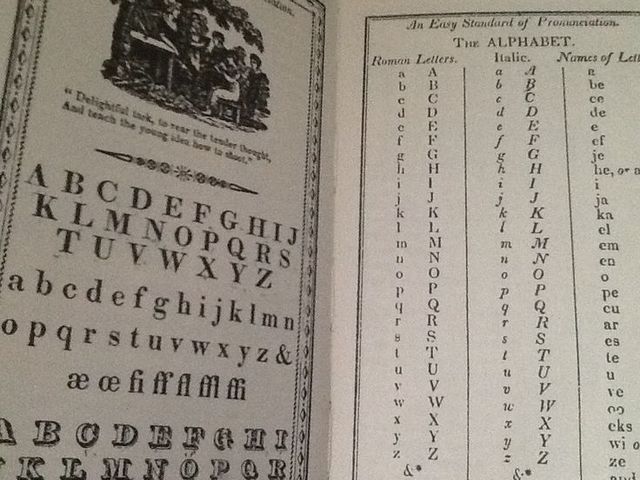 " Delightful task, to rear the tender thought,
And teach the young idea how to shoot."
A B C D E F G H I J
K L M N O P Q R S
T U V W X Y Z
a b c d e f g h i j k l m n
o p q r s t u v w x y z &
æ œ fi ff fl ffl ffi
A B C D E F G H I
K L M N O P Q R
An Easy Standard of Pronunciation.
THE ALPHABET.
Roman Letters. Italic. Names of Lett
a A a A a
b B b B be
c C c C ce
d D d D de
e E e E e
f F f F ef
g G g G je
h H h H he, or a
i I i I i
j J j J ja
k K k K ka
l L l L el
m M m M em
n N n N en
o O o O o
p P p P pe
q Q q Q cu
r R r R ar
s S s S es
t T t T te
u U u U u
v V v V ve
w W w W oo
x X x X eks
y Y y Y wi o
z Z z Z ze
&* &*